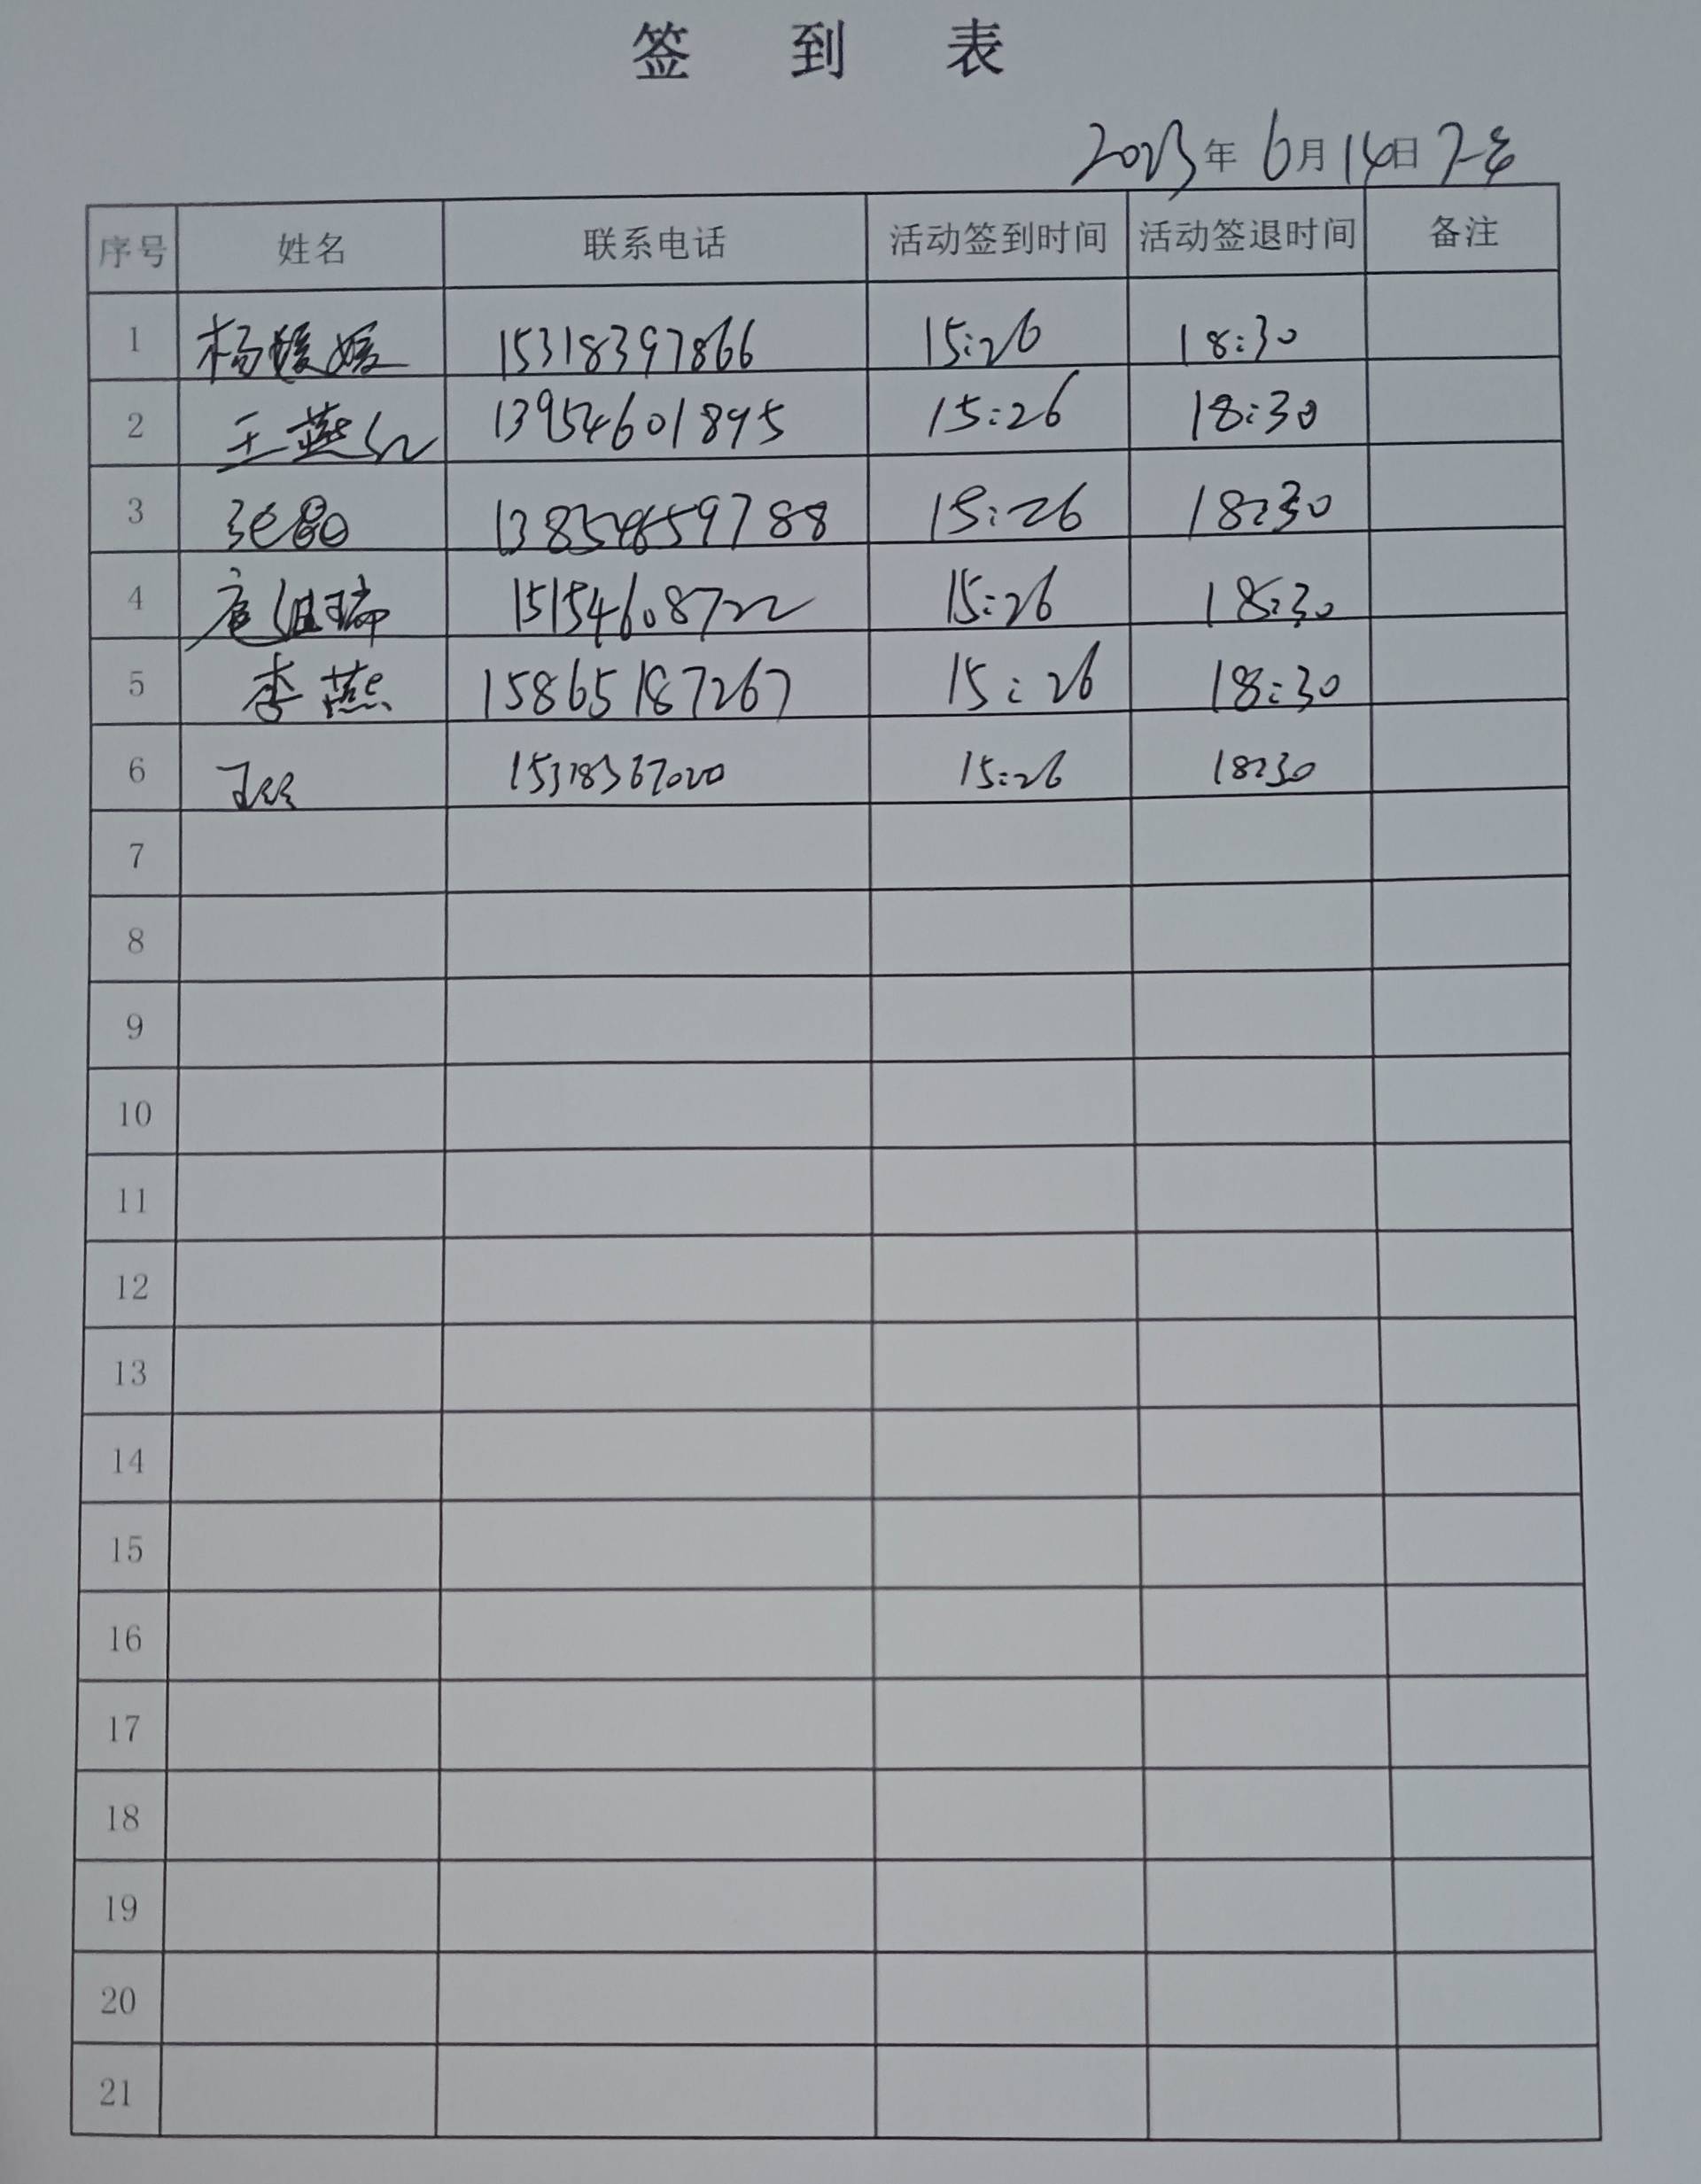 签 到 表
2023年 6月14日
序号 姓名 联系电话 活动签到时间 活动签退时间 备注
1 杨媛媛 15318397866 15:26 18:30
2 王燕红 13954601895 15:26 18:30
3 张磊 15:26 18:30
4 扈继瑞 15154608722 15:26 18:30
5 李燕 15865187267 15:26 18:30
6 15318367020 15:26 18:30
7
8
9
10
11
12
13
14
15
16
17
18
19
20
21